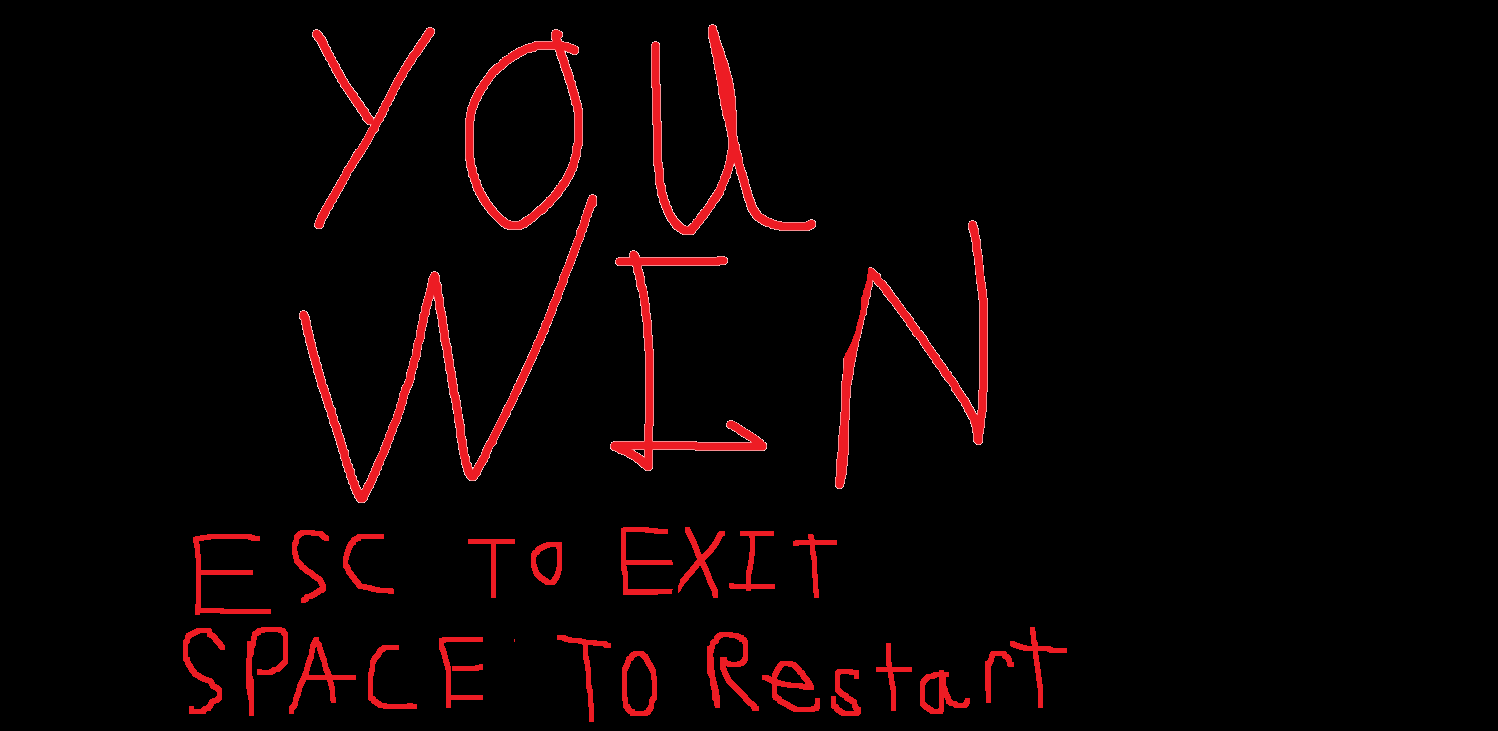 YOU
WIN
ESC TO EXIT
SPACE TO Restart